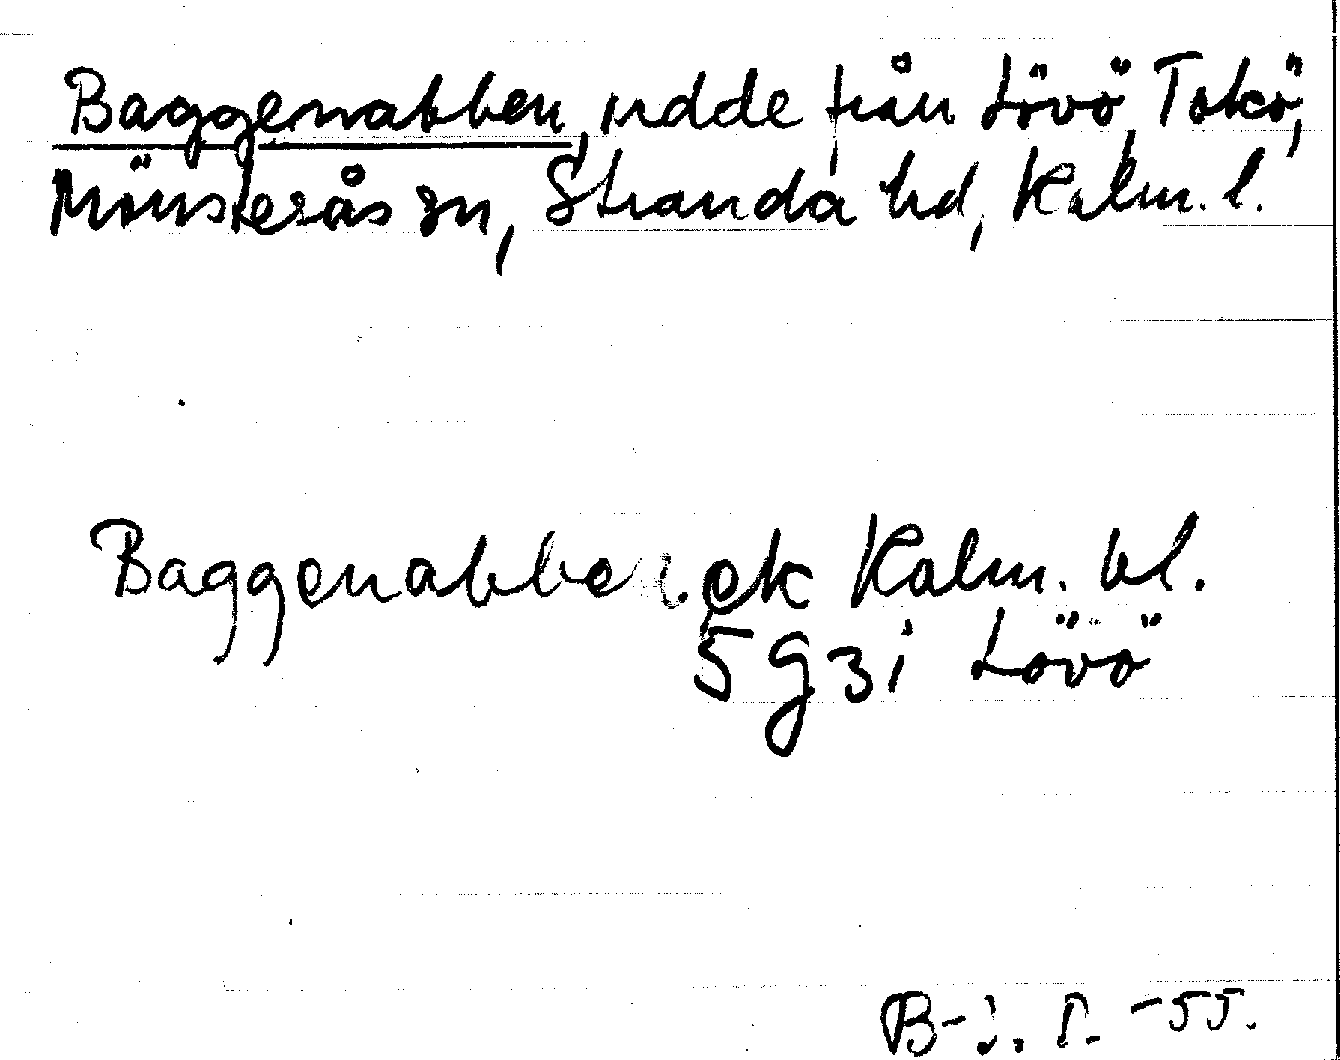 Baggenabben, udde från Lövö, Tokö,
Mönsterås sn, Stranda hd, Kalm. l.
Baggenabben. ek Kalm. bl.
5g3i Lövö
B-J. P. -55.